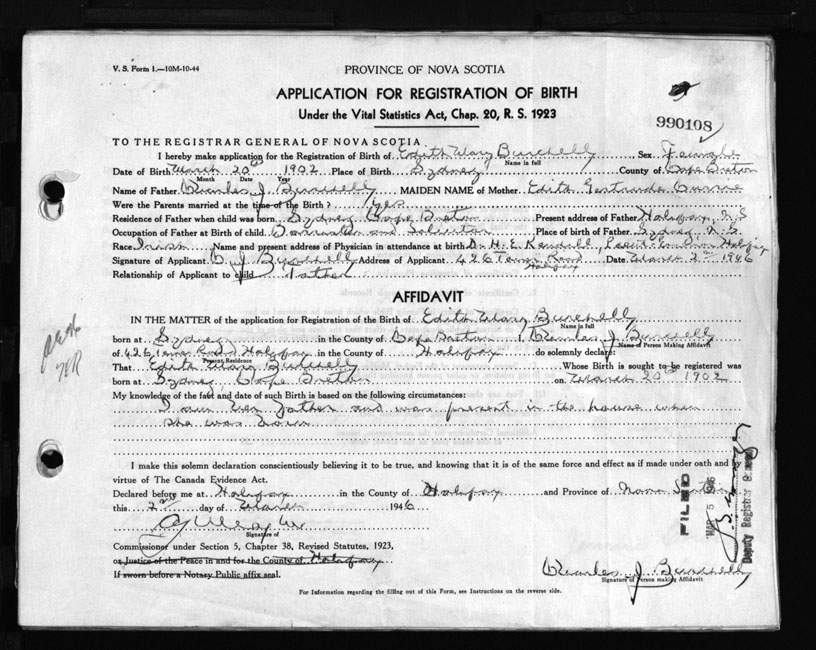 V. S. Form 1.—10M-10-44
PROVINCE OF NOVA SCOTIA
APPLICATION FOR REGISTRATION OF BIRTH
Under the Vital Statistics Act, Chap. 20, R. S. 1923
990108
TO THE REGISTRAR GENERAL OF NOVA SCOTIA
I hereby make application for the Registration of Birth of Edith Mary Burchell, Sex Female
Name in full
Date of Birth March 20th 1902 Place of Birth Sydney County of Cape Breton
Month Day Year
Name of Father Charles J. Burchell MAIDEN NAME of Mother Edith Gertrude Currie
Were the Parents married at the time of the Birth? Yes
Residence of Father when child was born Sydney Cape Breton Present address of Father Halifax, N.S
Occupation of Father at Birth of child Barrister and Solicitor Place of birth of Father Sydney N.S.
Race Irish Name and present address of Physician in attendance at birth Dr H. E. Kendall, Halifax
Signature of Applicant C. J. Burchell Address of Applicant 426 Tower Road Halifax Date March 2nd 1946
Relationship of Applicant to child Father
AFFIDAVIT
IN THE MATTER of the application for Registration of the Birth of Edith Mary Burchell
Name in full
born at Sydney in the County of Cape Breton I, Charles J. Burchell
Name of Person Making Affidavit
of 426 Tower Road Halifax in the County of Halifax do solemnly declare:
Present Residence
That Edith Mary Burchell Whose Birth is sought to be registered was
born at Sydney Cape Breton on March 20th 1902
My knowledge of the fact and date of such Birth is based on the following circumstances:
I am her father and was present in the house when
she was born
I make this solemn declaration conscientiously believing it to be true, and knowing that it is of the same force and effect as if made under oath and by
virtue of The Canada Evidence Act.
Declared before me at Halifax in the County of Halifax and Province of Nova Scotia
this 2nd day of March 1946
Signature of
Commissioner under Section 5, Chapter 38, Revised Statutes, 1923,
or Justice of the Peace in and for the County of Halifax
If sworn before a Notary Public affix seal.
Charles J. Burchell
Signature of Person making Affidavit
For Information regarding the filling out of this Form, see Instructions on the reverse side.
FILED
MAR 5 1946
Deputy Registrar